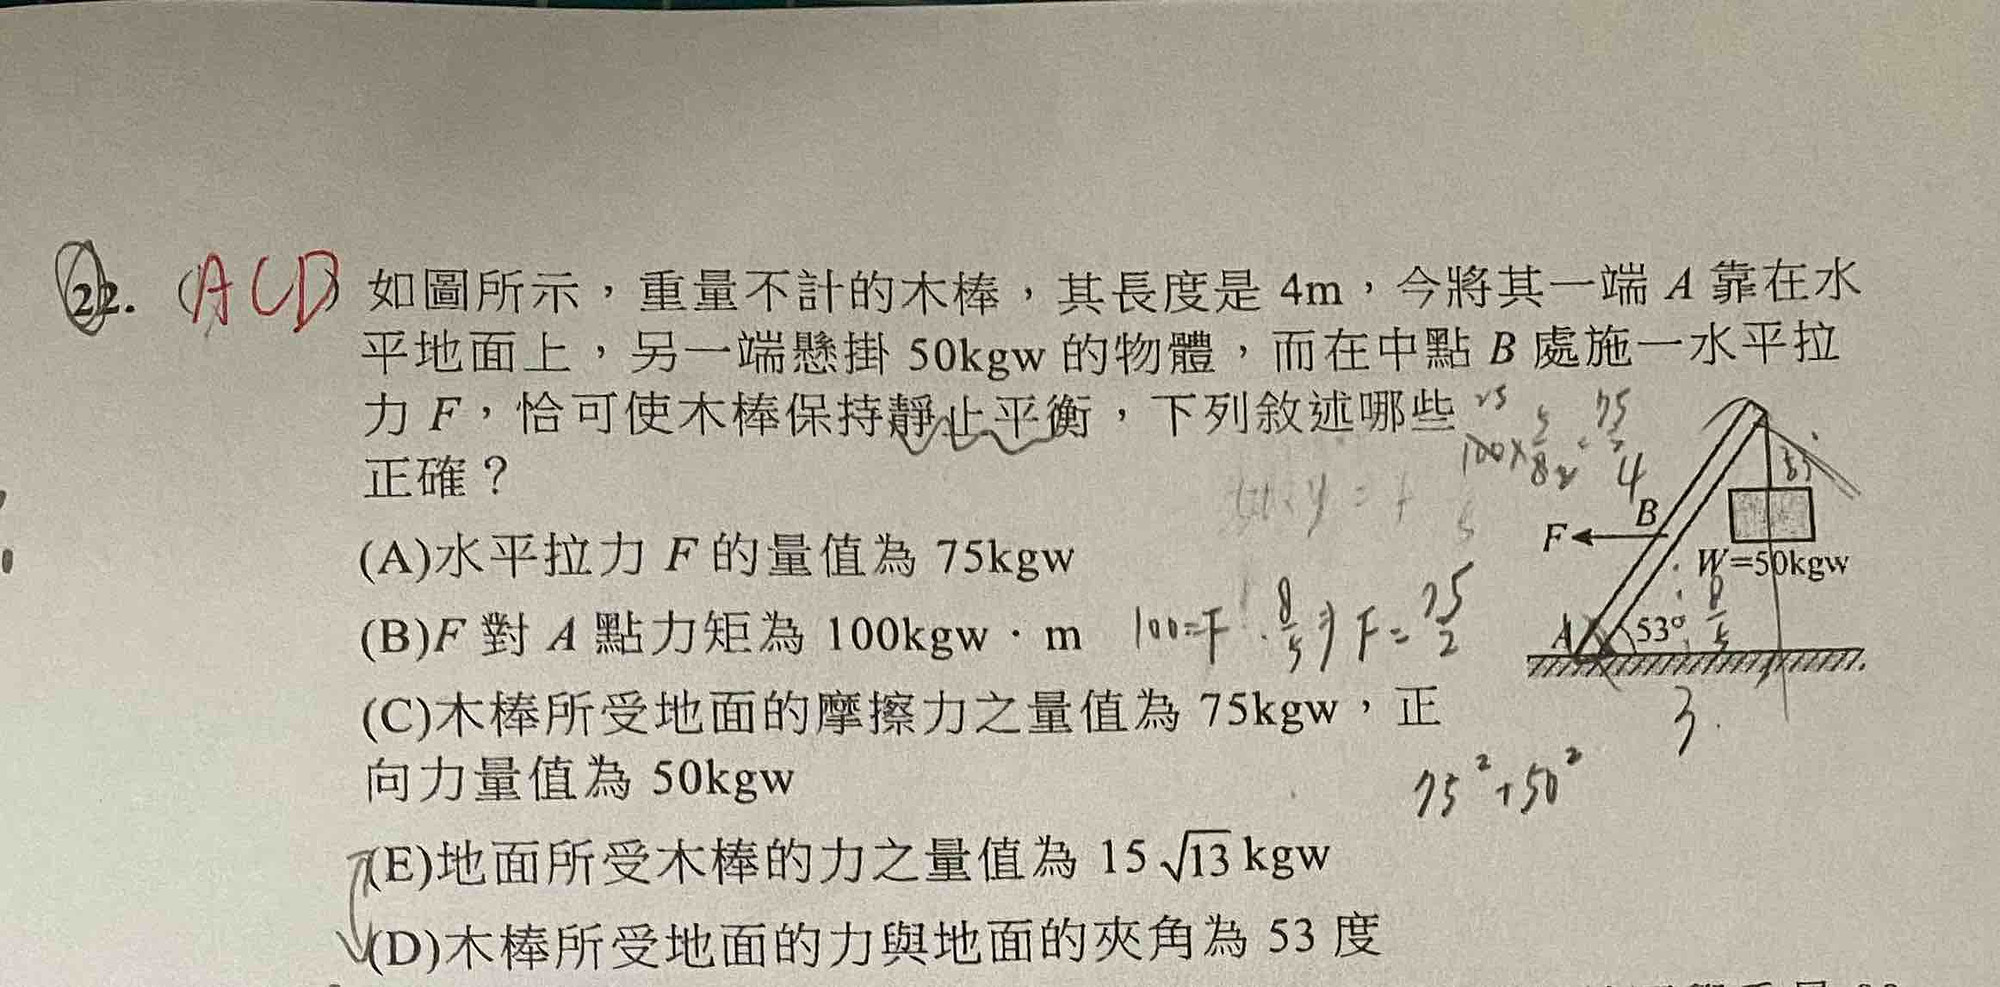 22. (ACD) 如圖所示，重量不計的木棒，其長度是 4m，今將其一端 A 靠在水
平地面上，另一端懸掛 50kgw 的物體，而在中點 B 處施一水平拉
力 F，恰可使木棒保持靜止平衡，下列敘述哪些
正確？
(A)水平拉力 F 的量值為 75kgw
(B)F 對 A 點力矩為 100kgw · m
100=F · 8/5 ⇒ F = 75/2
(C)木棒所受地面的摩擦力之量值為 75kgw，正
向力量值為 50kgw
75²+50²
(E)地面所受木棒的力之量值為 15√13 kgw
(D)木棒所受地面的力與地面的夾角為 53 度
B
F
W=50kgw
A
53°
8/5
3